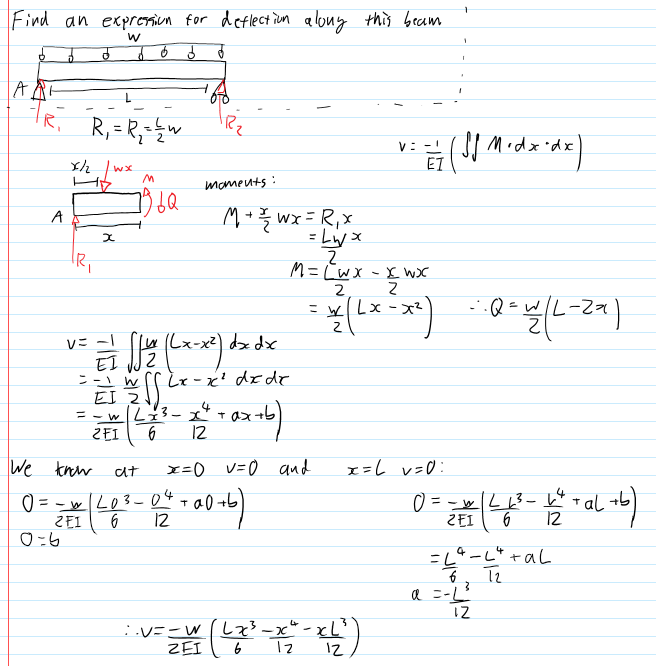 Find an expression for deflection along this beam
w
A
L
R₁ R₂
R₁ = R₂ = L/2 w
v = -1/EI (∬ M·dx·dx)
x/2 wx M
A Q
x
R₁
moments:
M + x/2 wx = R₁x
= Lw/2 x
M = Lwx/2 - x/2 wx
= w/2 (Lx - x²) ∴ Q = w/2 (L - 2x)
v = -1/EI ∬ w/2 (Lx - x²) dx dx
= -1/EI w/2 ∬ Lx - x² dx dx
= -w/2EI (Lx³/6 - x⁴/12 + ax + b)
We know at x=0 v=0 and x=L v=0:
0 = -w/2EI (L0³/6 - 0⁴/12 + a0 + b)
0 = b
0 = -w/2EI (LL³/6 - L⁴/12 + aL + b)
= L⁴/6 - L⁴/12 + aL
a = -L³/12
∴ v = -w/2EI (Lx³/6 - x⁴/12 - xL³/12)